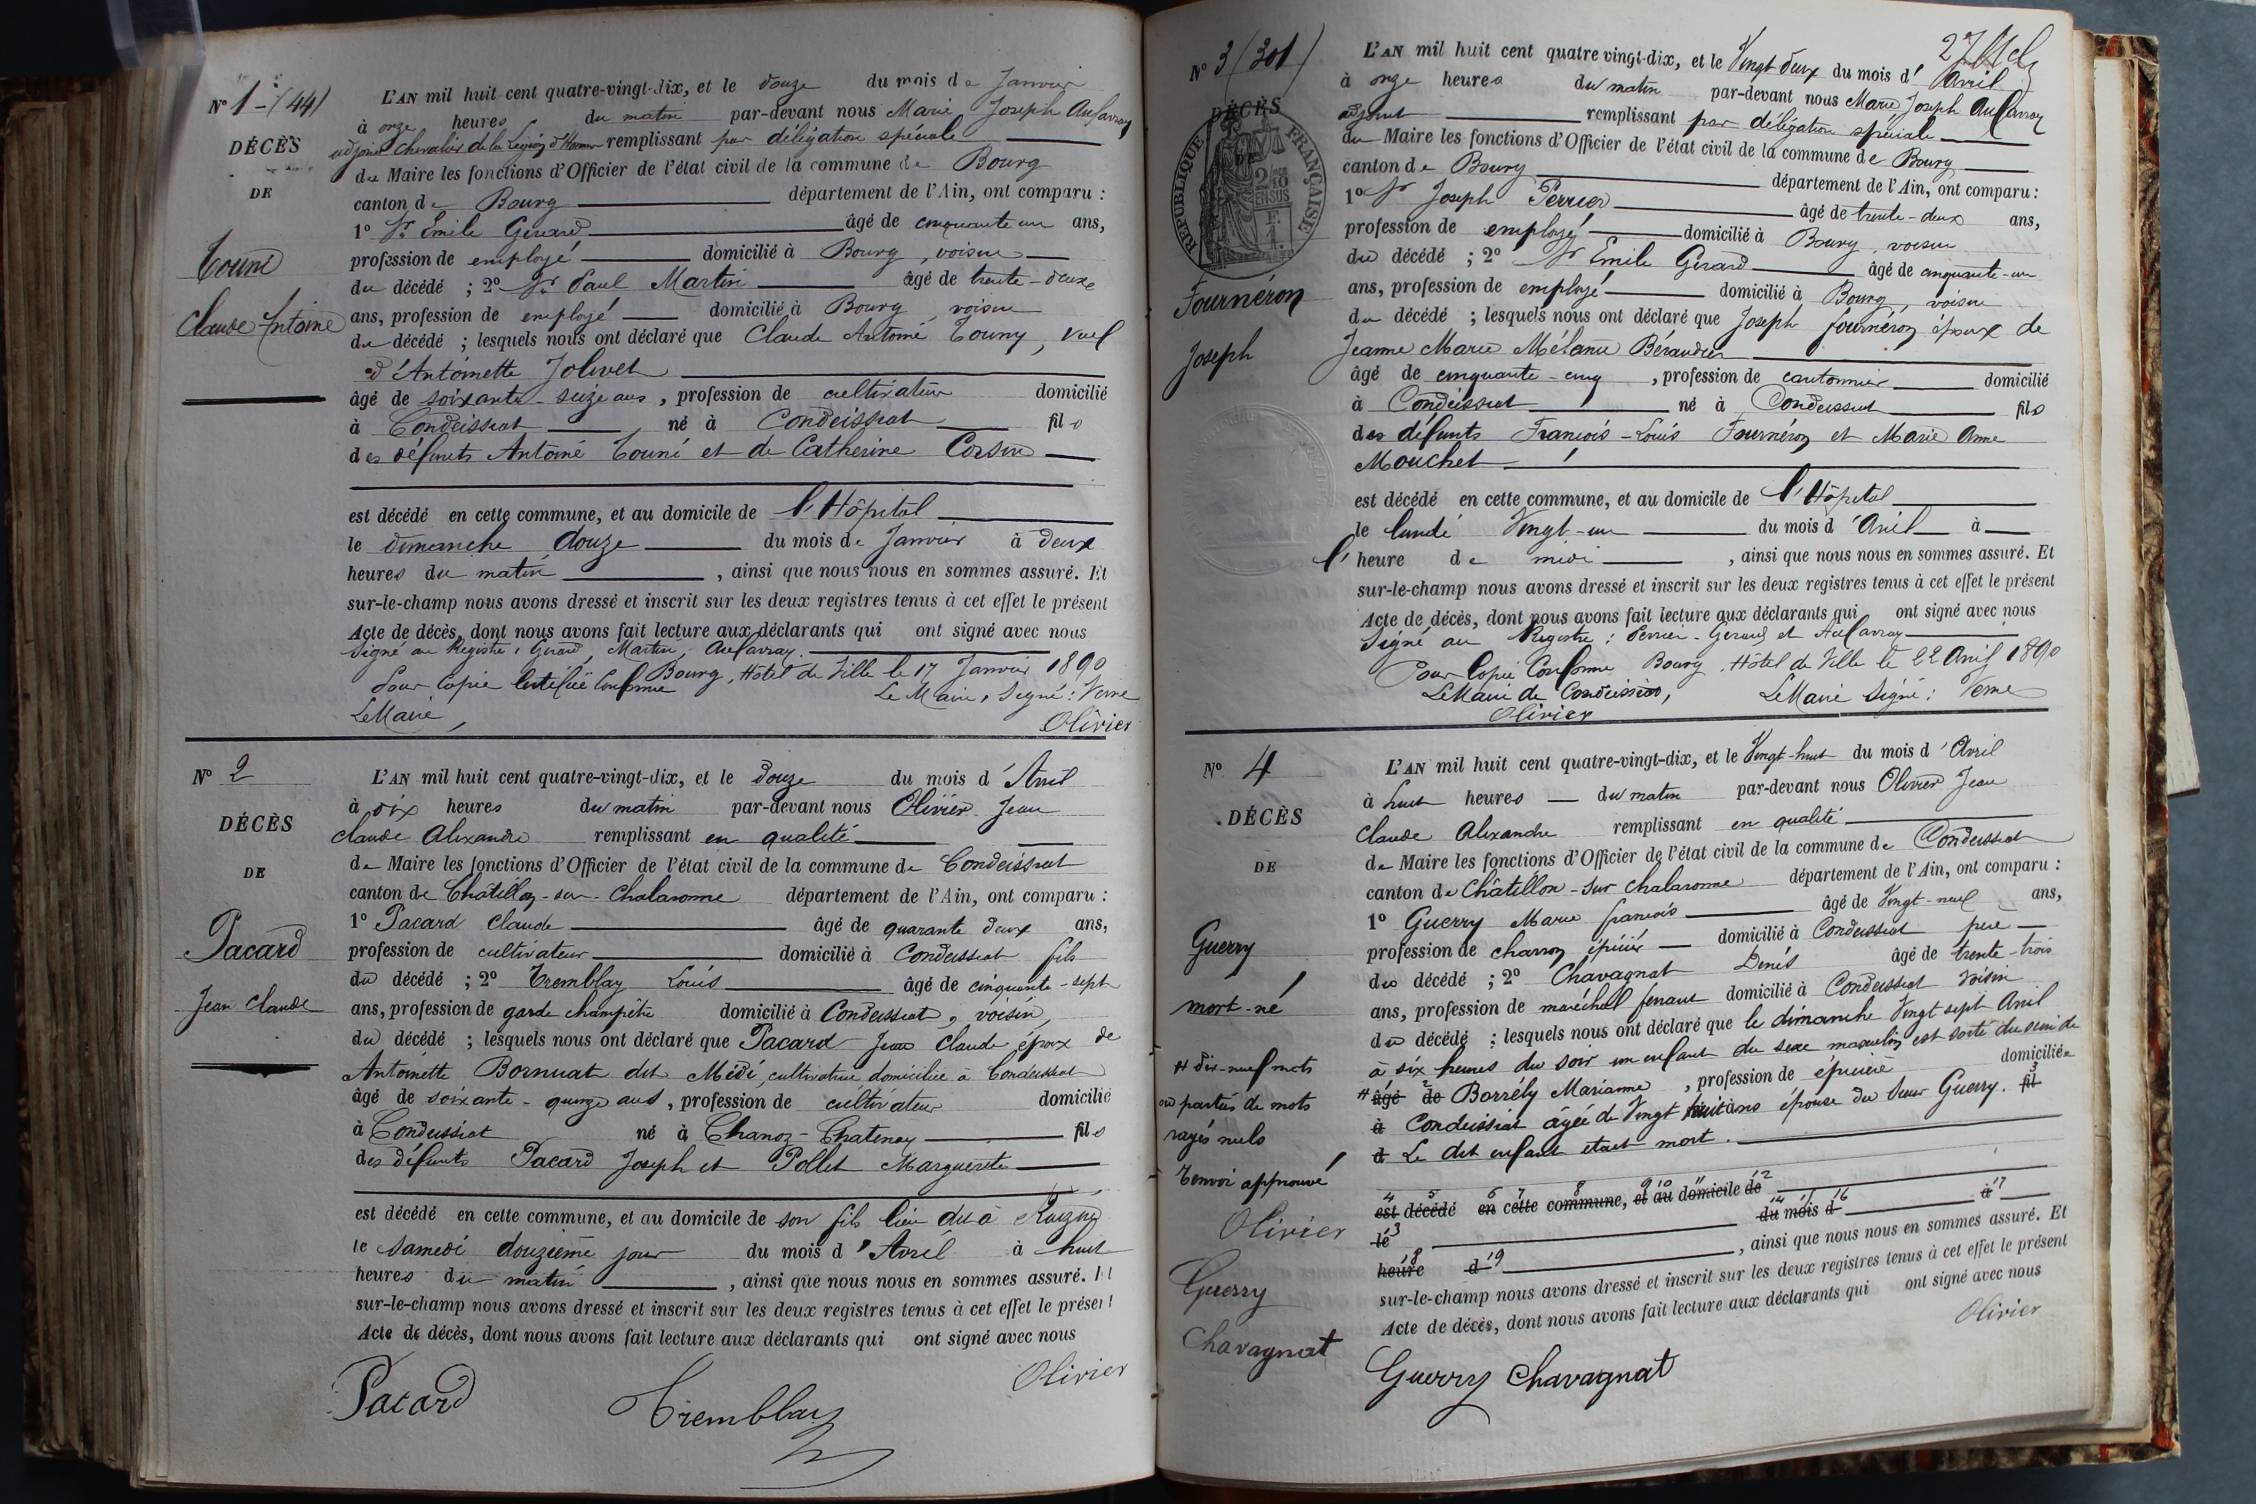 N° 1 - (44)
DÉCÈS
DE
Touni
Claude Antoine
L'AN mil huit cent quatre-vingt-dix, et le douze du mois de Janvier
à onze heures du matin par-devant nous Marie Joseph Aufavray
adjoint chevalier de la Légion d'Honneur remplissant par délégation spéciale
du Maire les fonctions d'Officier de l'état civil de la commune de Bourg
canton de Bourg département de l'Ain, ont comparu :
1° Sr Emile Girard âgé de cinquante un ans,
profession de employé domicilié à Bourg, voisin
du décédé ; 2° Sr Paul Martin âgé de trente-deux
ans, profession de employé domicilié à Bourg, voisin
du décédé ; lesquels nous ont déclaré que Claude Antoine Touny, veuf
d'Antoinette Jolivet
âgé de soixante-seize ans, profession de cultivateur domicilié
à Condeissiat né à Condeissiat fils
des défunts Antoine Touni et de Catherine Corsin
est décédé en cette commune, et au domicile de l'Hôpital
le dimanche douze du mois de Janvier à deux
heures du matin, ainsi que nous nous en sommes assuré. Et
sur-le-champ nous avons dressé et inscrit sur les deux registres tenus à cet effet le présent
Acte de décès, dont nous avons fait lecture aux déclarants qui ont signé avec nous
Signé au Registre : Girard, Martin, Aufavray.
Bourg, Hôtel de Ville le 17 Janvier 1890
Pour Copie Certifiée Conforme Le Maire, Signé : Verne
Le Maire,
Olivier
N° 2
DÉCÈS
DE
Pacard
Jean Claude
L'AN mil huit cent quatre-vingt-dix, et le douze du mois d'Avril
à dix heures du matin par-devant nous Olivier Jean
Claude Alexandre remplissant en qualité
de Maire les fonctions d'Officier de l'état civil de la commune de Condeissiat
canton de Châtillon-sur-Chalaronne département de l'Ain, ont comparu :
1° Pacard Claude âgé de quarante deux ans,
profession de cultivateur domicilié à Condeissiat fils
du décédé ; 2° Tremblay Louis âgé de cinquante-sept
ans, profession de garde champêtre domicilié à Condeissiat, voisin,
du décédé ; lesquels nous ont déclaré que Pacard Jean Claude époux de
Antoinette Bornuat dit Midi, cultivatrice domiciliée à Condeissiat
âgé de soixante-quinze ans, profession de cultivateur domicilié
à Condeissiat né à Chanoz-Chatenay fils
des défunts Pacard Joseph et Pollet Marguerite
est décédé en cette commune, et au domicile de son fils lieu dit à
le samedi douzième jour du mois d'Avril à huit
heures du matin, ainsi que nous nous en sommes assuré. Et
sur-le-champ nous avons dressé et inscrit sur les deux registres tenus à cet effet le présent
Acte de décès, dont nous avons fait lecture aux déclarants qui ont signé avec nous
Olivier
Pacard Tremblay
N° 3 (301)
DÉCÈS
RÉPUBLIQUE FRANÇAISE
2/10 EN SUS
Fournéron
Joseph
L'AN mil huit cent quatre vingt-dix, et le Vingt deux du mois d'Avril
à onze heures du matin par-devant nous Marie Joseph Aufavray
adjoint remplissant par délégation spéciale
du Maire les fonctions d'Officier de l'état civil de la commune de Bourg
canton de Bourg département de l'Ain, ont comparu :
1° Sr Joseph Perrier âgé de trente-deux ans,
profession de employé domicilié à Bourg, voisin
du décédé ; 2° Sr Emile Girard âgé de cinquante-un
ans, profession de employé domicilié à Bourg, voisin
du décédé ; lesquels nous ont déclaré que Joseph Fournéron époux de
Jeanne Marie Mélanie Béraudier
âgé de cinquante-cinq, profession de cantonnier domicilié
à Condeissiat né à Condeissiat fils
des défunts François-Louis Fournéron et Marie Anne
Mouchet
est décédé en cette commune, et au domicile de l'Hôpital
le lundi Vingt-un du mois d'Avril à
l'heure de midi, ainsi que nous nous en sommes assuré. Et
sur-le-champ nous avons dressé et inscrit sur les deux registres tenus à cet effet le présent
Acte de décès, dont nous avons fait lecture aux déclarants qui ont signé avec nous
Signé au Registre : Perrier - Girard et Aufavray
Pour Copie Conforme Bourg, Hôtel de Ville le 22 Avril 1890
Le Maire de Condeissiat, Le Maire Signé : Verne
Olivier
N° 4
DÉCÈS
DE
Guerry
mort-né
# dix-neuf mots
ou parties de mots
rayés nuls
renvoi approuvé
Olivier
Guerry
Chavagnat
L'AN mil huit cent quatre-vingt-dix, et le Vingt-huit du mois d'Avril
à huit heures du matin par-devant nous Olivier Jean
Claude Alexandre remplissant en qualité
de Maire les fonctions d'Officier de l'état civil de la commune de Condeissiat
canton de Châtillon-sur-Chalaronne département de l'Ain, ont comparu :
1° Guerry Marie François âgé de Vingt-neuf ans,
profession de charron épicier domicilié à Condeissiat père
du décédé ; 2° Chavagnat Denis âgé de trente-trois
ans, profession de maréchal ferrant domicilié à Condeissiat voisin
du décédé ; lesquels nous ont déclaré que le dimanche Vingt sept Avril
à six heures du soir un enfant du sexe masculin est sorti du sein de
# âgé de Borrély Marianne, profession de épicière domiciliée
à Condeissiat âgée de Vingt huit ans épouse du Sieur Guerry. fil
d Le dit enfant était mort.
est décédé en cette commune, et au domicile de
le du mois d à
heure d, ainsi que nous nous en sommes assuré. Et
sur-le-champ nous avons dressé et inscrit sur les deux registres tenus à cet effet le présent
Acte de décès, dont nous avons fait lecture aux déclarants qui ont signé avec nous
Olivier
Guerry Chavagnat